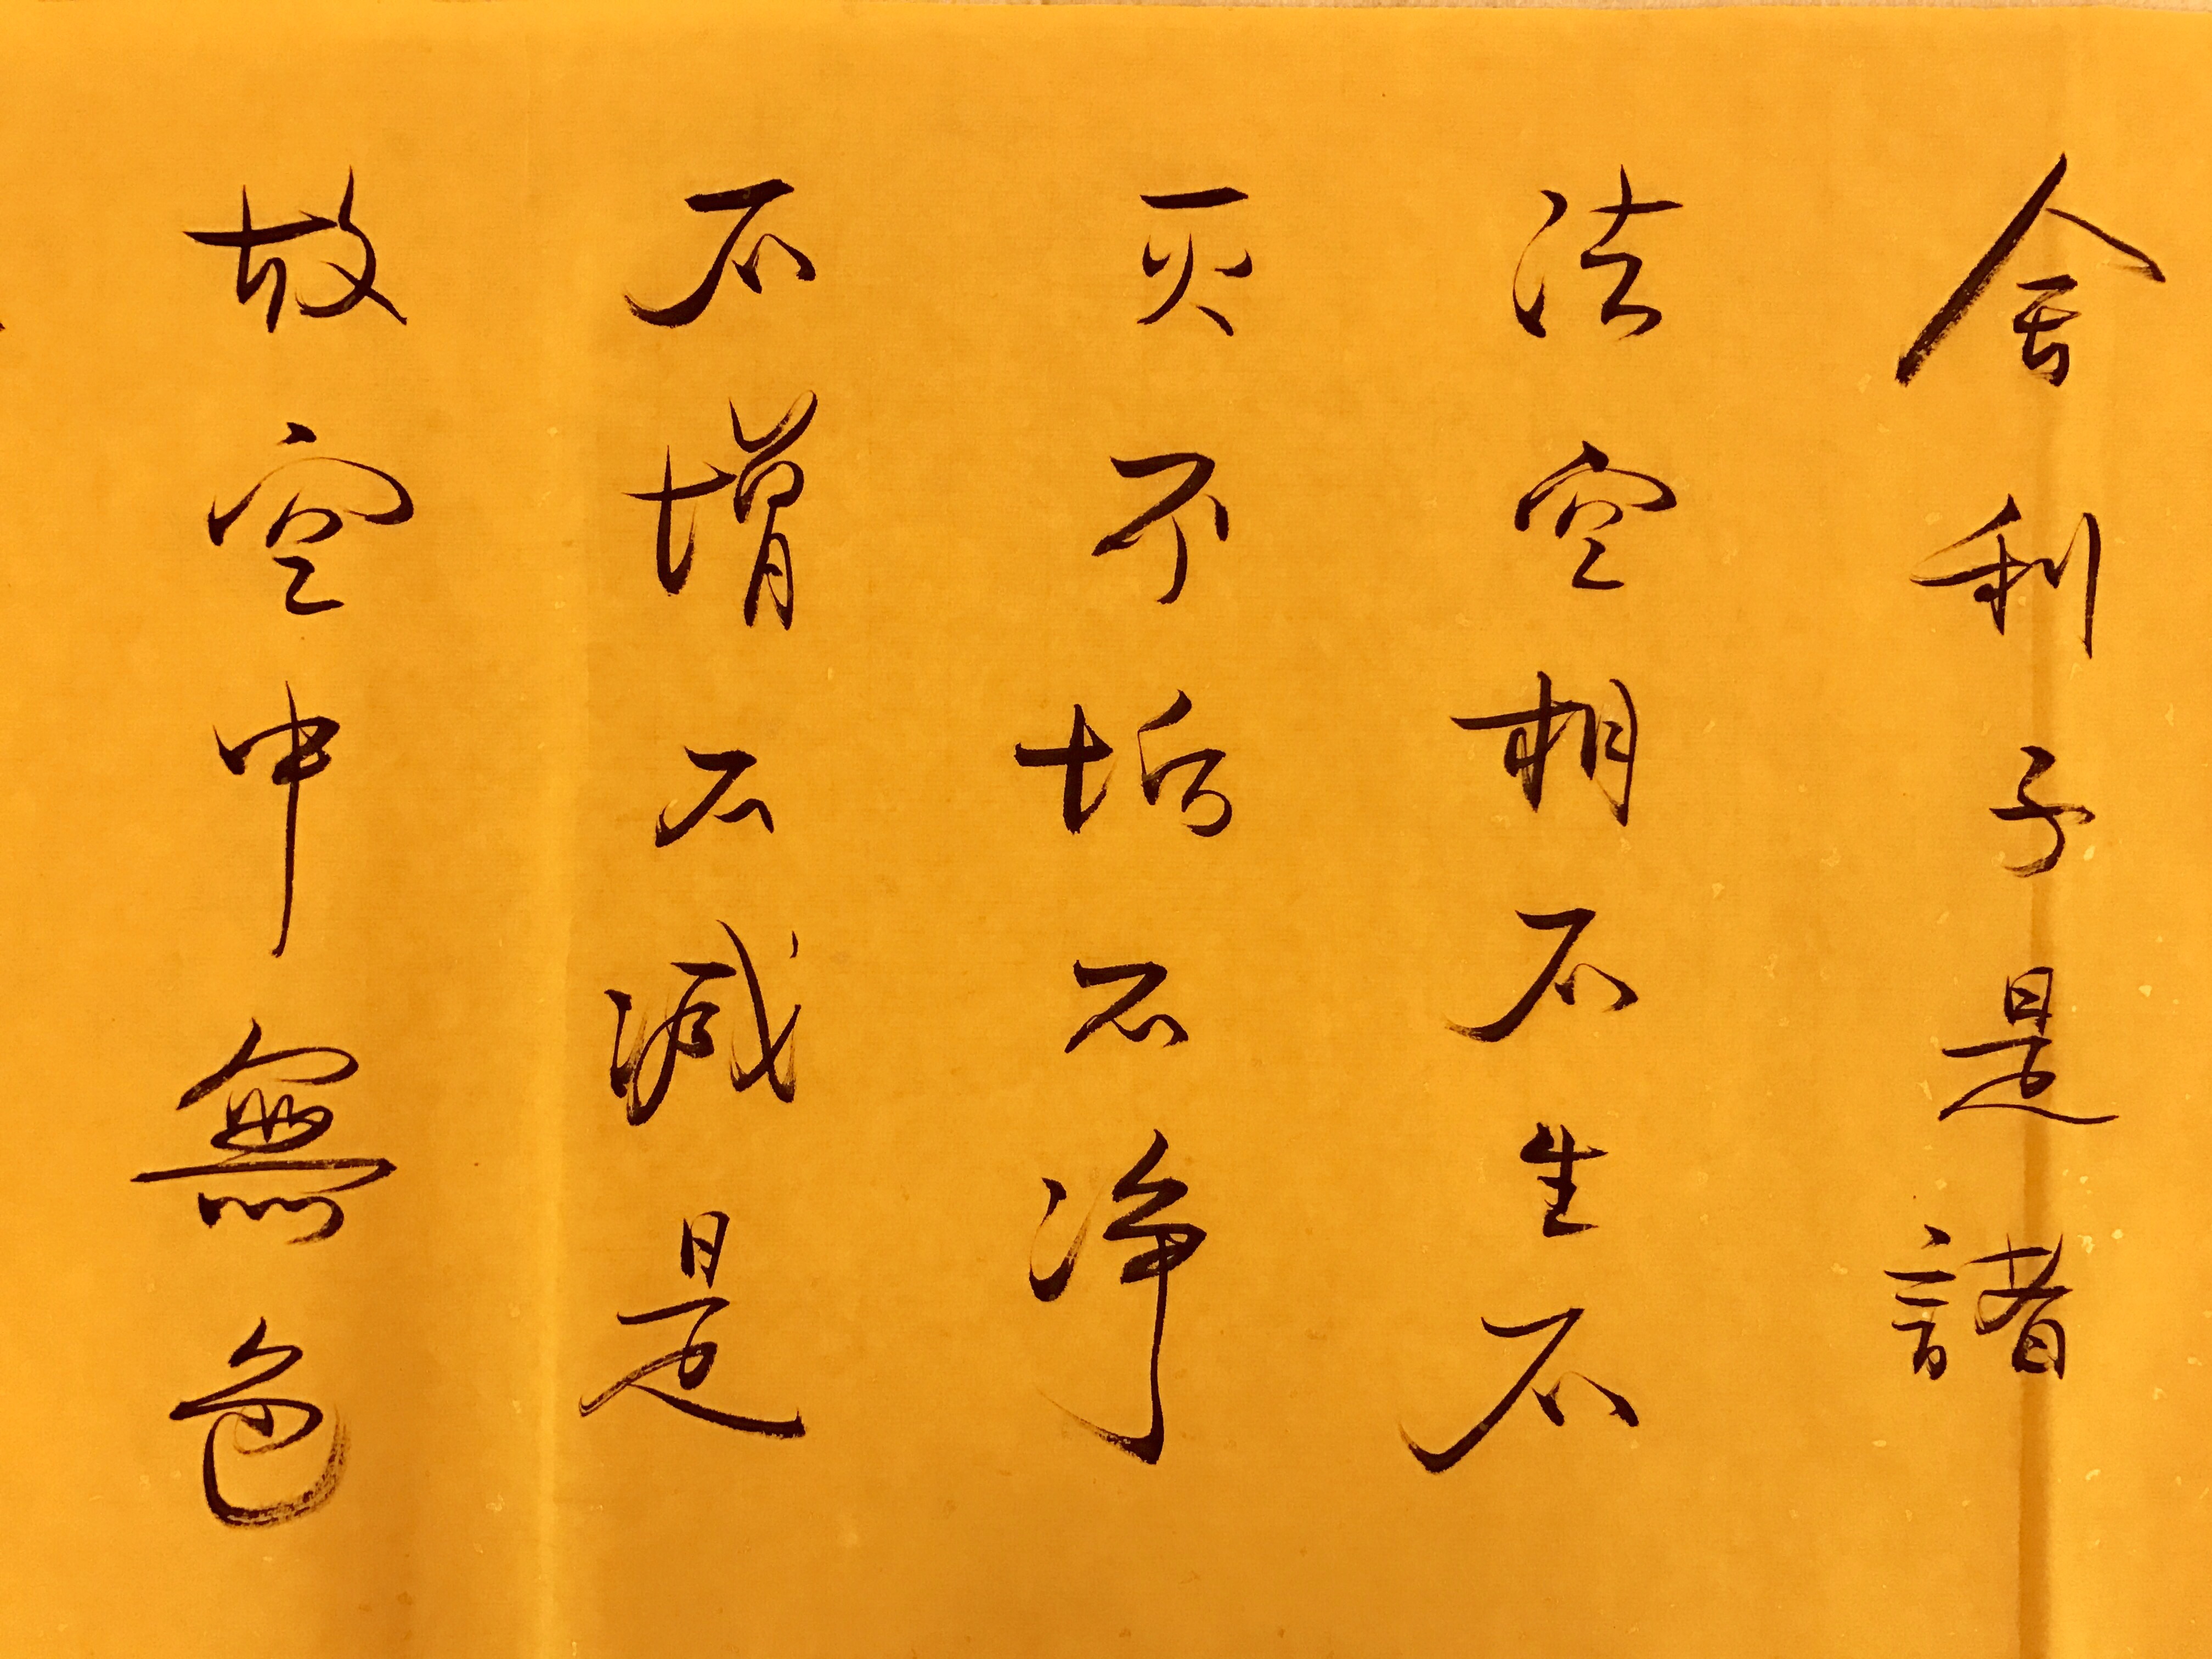 舍利子是諸
法空相不生不
灭不垢不净
不增不减是
故空中無色